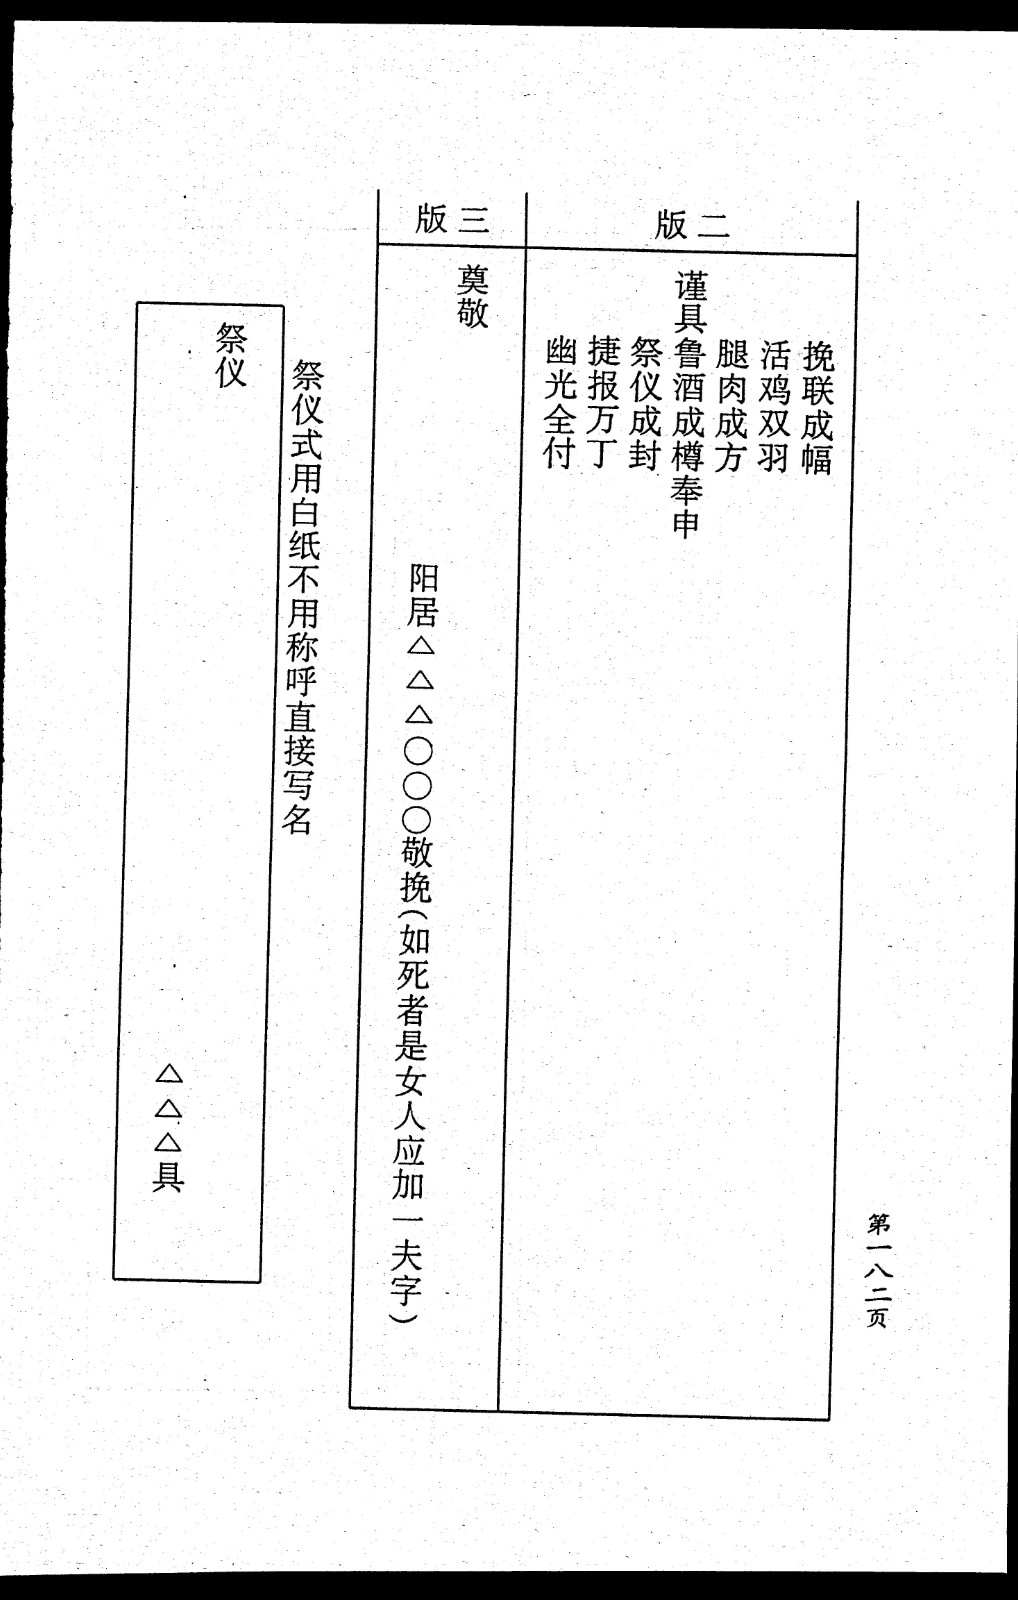 第一八二页
二版
挽联成幅
活鸡双羽
腿肉成方
谨具鲁酒成樽奉申
祭仪成封
捷报万丁
幽光全付
三版
奠敬
阳居△△△○○○敬挽(如死者是女人应加一夫字)
祭仪式用白纸不用称呼直接写名
祭仪
△△△具